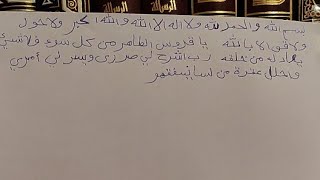 بسم الله والحمد لله ولا اله الا الله والله اكبر ولا حول
ولا قوة الا بالله يا قدوس الطاهر من كل سوء فلا شيء
يعادله من خلقه رب اشرح لي صدري ويسر لي أمري
واحلل عقدة من لساني